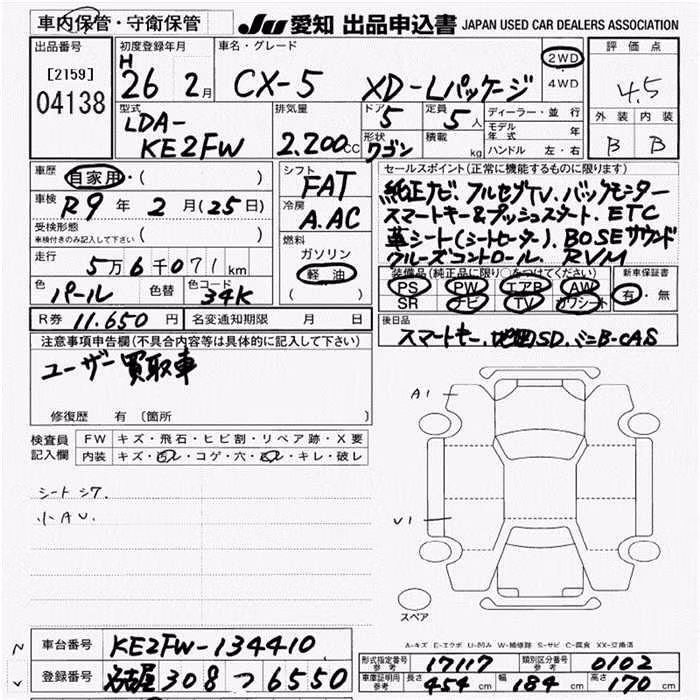 車内保管・守衛保管
JU 愛知 出品申込書 JAPAN USED CAR DEALERS ASSOCIATION
出品番号
[2159]
04138
初度登録年月
H 26 2月
車名・グレード
CX-5 XD-Lパッケージ
2WD・4WD
評価点
4.5
外装 内装
B B
型式
LDA-
KE2FW
排気量
2.200cc
ドア
5
定員
5人
形状
ワゴン
積載
kg
ディーラー・並行
モデル年式 年
ハンドル 左・右
車歴
自家用・( )
車検
R9年 2月(25日)
受検形態
車検付きのみ記入して下さい ( )
走行
5万6千071km
色
パール
色替
色コード
34K
シフト
FAT
冷房
A.AC
燃料
ガソリン
軽油
( )
セールスポイント(正常に機能するものに限ります)
純正ナビ、フルセグTV、バックモニター
スマートキー&プッシュスタート、ETC
革シート(シートヒーター)、BOSEサウンド
クルーズコントロール、RVM
装備品(純正品に限り○をつけてください)
PS PW エアB AW
SR ナビ TV カワシート
新車保証書
有・無
R券 11.650円
名変通知期限 月 日
後日品
スマートキー、地図SD、ミニB-CAS
注意事項申告欄(不具合内容等は具体的に記入して下さい)
ユーザー買取車
修復歴 有 〔箇所 〕
検査員記入欄
FW キズ・飛石・ヒビ割・リペア跡・X要
内装 キズ・凹レ・コゲ・穴・凹レ・キレ・破レ
シートシワ.
小AU.
A1
U1
スペア
A-キズ E-エクボ U-凹み W-補修跡 S-サビ C-腐食 XX-交換済
車台番号 KE2FW-134410
登録番号 名古屋 308 つ 6550
形式指定番号 参考 17117
類別区分番号 参考 0102
車庫証明用 参考 長さ 454cm 幅 184cm 高さ 170cm